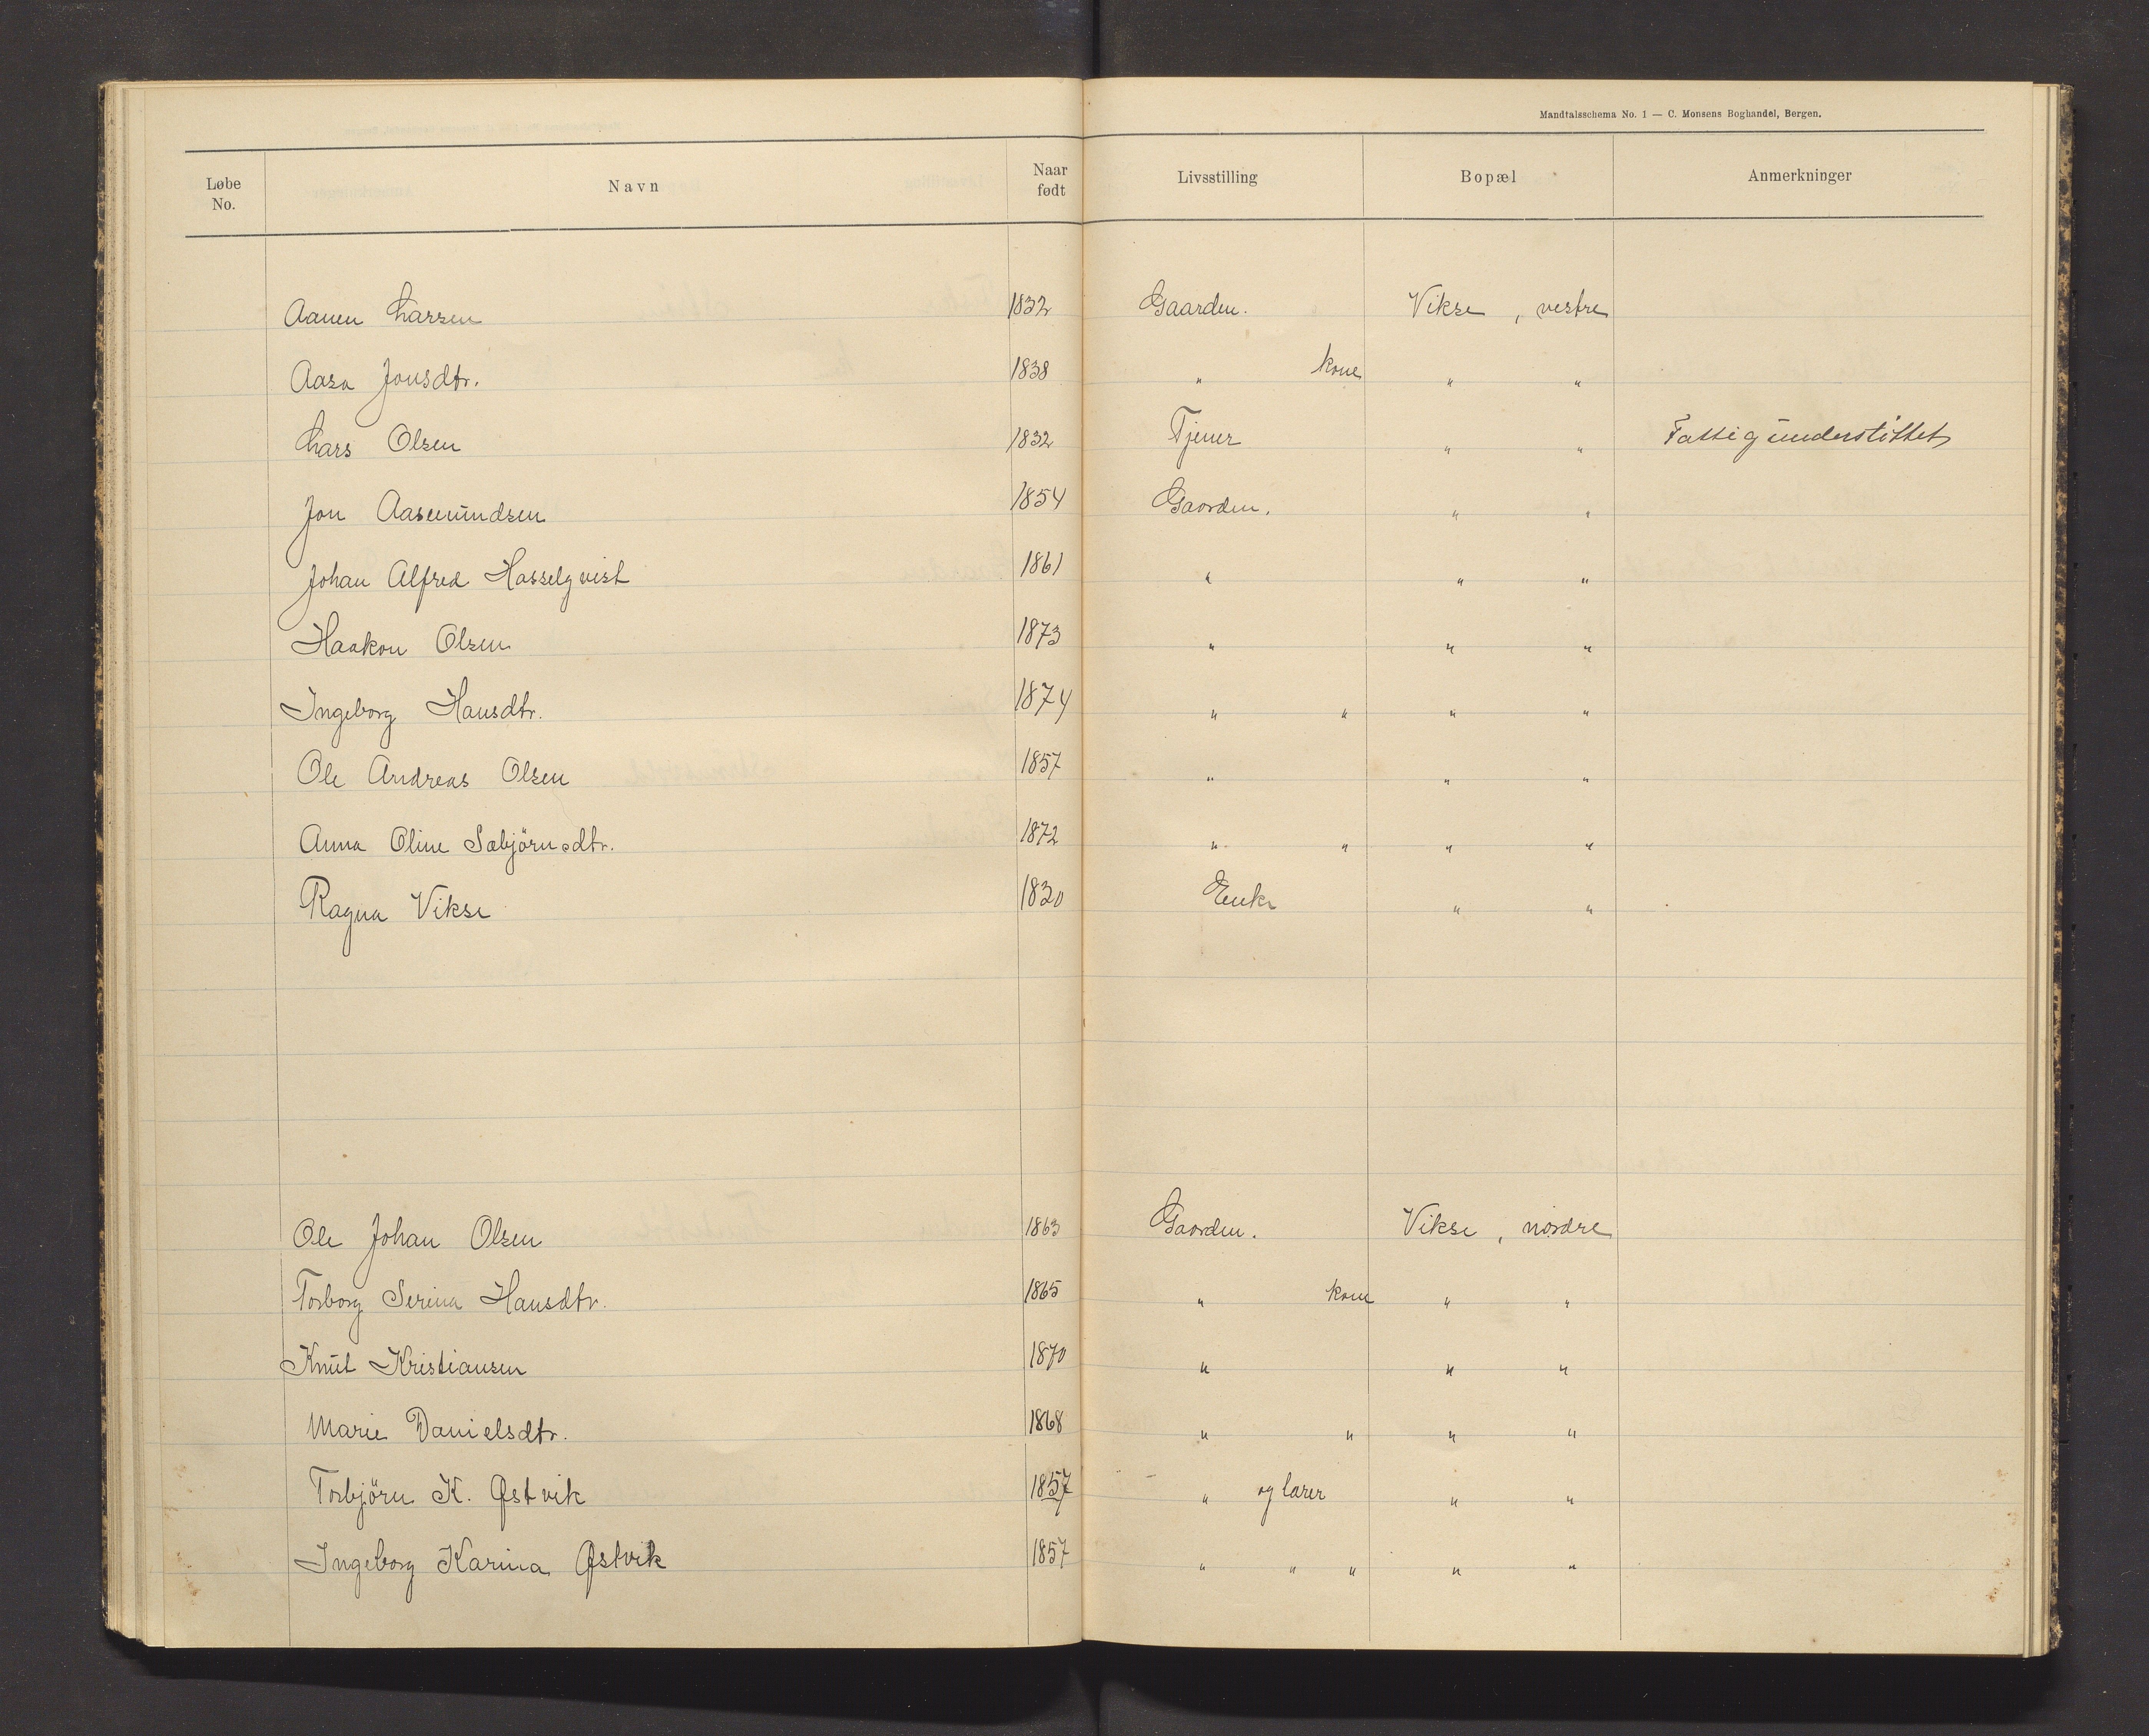 Mandtalsschema No. 1 — C. Monsens Boghandel, Bergen.
Løbe No. Navn Naar født Livsstilling Bopæl Anmerkninger
Aanen Larsen 1832 Gaarden. Vikse, vestre
Aasa Jonsdtr. 1838 " kone " "
Lars Olsen 1832 Tjener " " Fattigunderstöttet
Jon Aasmundsen 1854 Gaarden. " "
Johan Alfred Hasselqvist 1861 " " "
Haakon Olsen 1873 " " "
Ingeborg Hansdtr. 1874 " " " "
Ole Andreas Olsen 1857 " " "
Anna Oline Sæbjörnsdtr. 1872 " " " "
Ragna Vikse 1830 Enke " "
Ole Johan Olsen 1863 Gaarden. Vikse, nordre
Torborg Serina Hansdtr. 1865 " kone " "
Knut Kristiansen 1870 " " "
Marie Danielsdtr. 1868 " " " "
Torbjörn K. Østvik 1857 " og lærer " "
Ingeborg Karina Østvik 1857 " " " " "